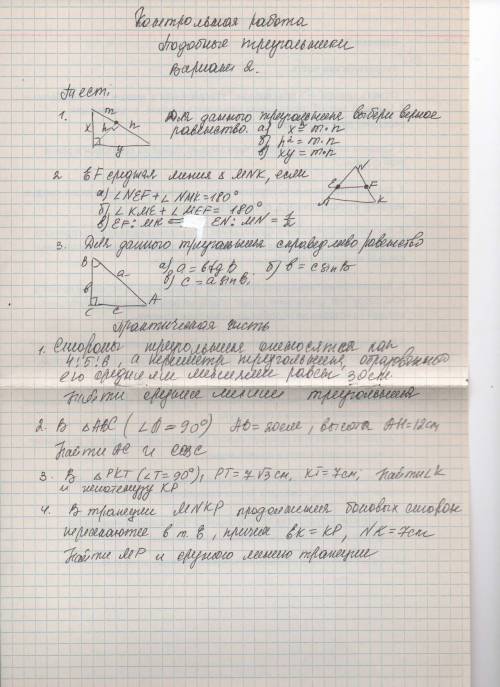 Контрольная работа
Подобные треугольники
Вариант 2.
Тест.
1. Для данного треугольника выбери верное
равенство. а) x² = m·n
б) h² = m·n
в) xy = m·n
m
x h n
y
2. EF средняя линия △ MNK, если
а) ∠NEF + ∠NMK = 180°
б) ∠KME + ∠MEF = 180°
в) EF : MK = EN : MN = 1/2
N
E F
K
3. Для данного треугольника справедливо равенство
а) a = b tg B б) b = c sin B
в) c = a sin B.
B
a
b
C c A
Практическая часть
1. Стороны треугольника относятся как
4:5:6, а периметр треугольника, образованного
его средними линиями равен 30см.
Найти средние линии треугольника
2. В △ABC (∠A = 90°) AB = 20см, высота AH = 12см
Найти AC и cos C
3. В △PKT (∠T = 90°), PT = 7√3 см, KT = 7см, Найти ∠K
и гипотенузу KP
4. В трапеции MNKP продолжения боковых сторон
пересекаются в т. B, причем BK = KP, NK = 7см
Найти MP и среднюю линию трапеции